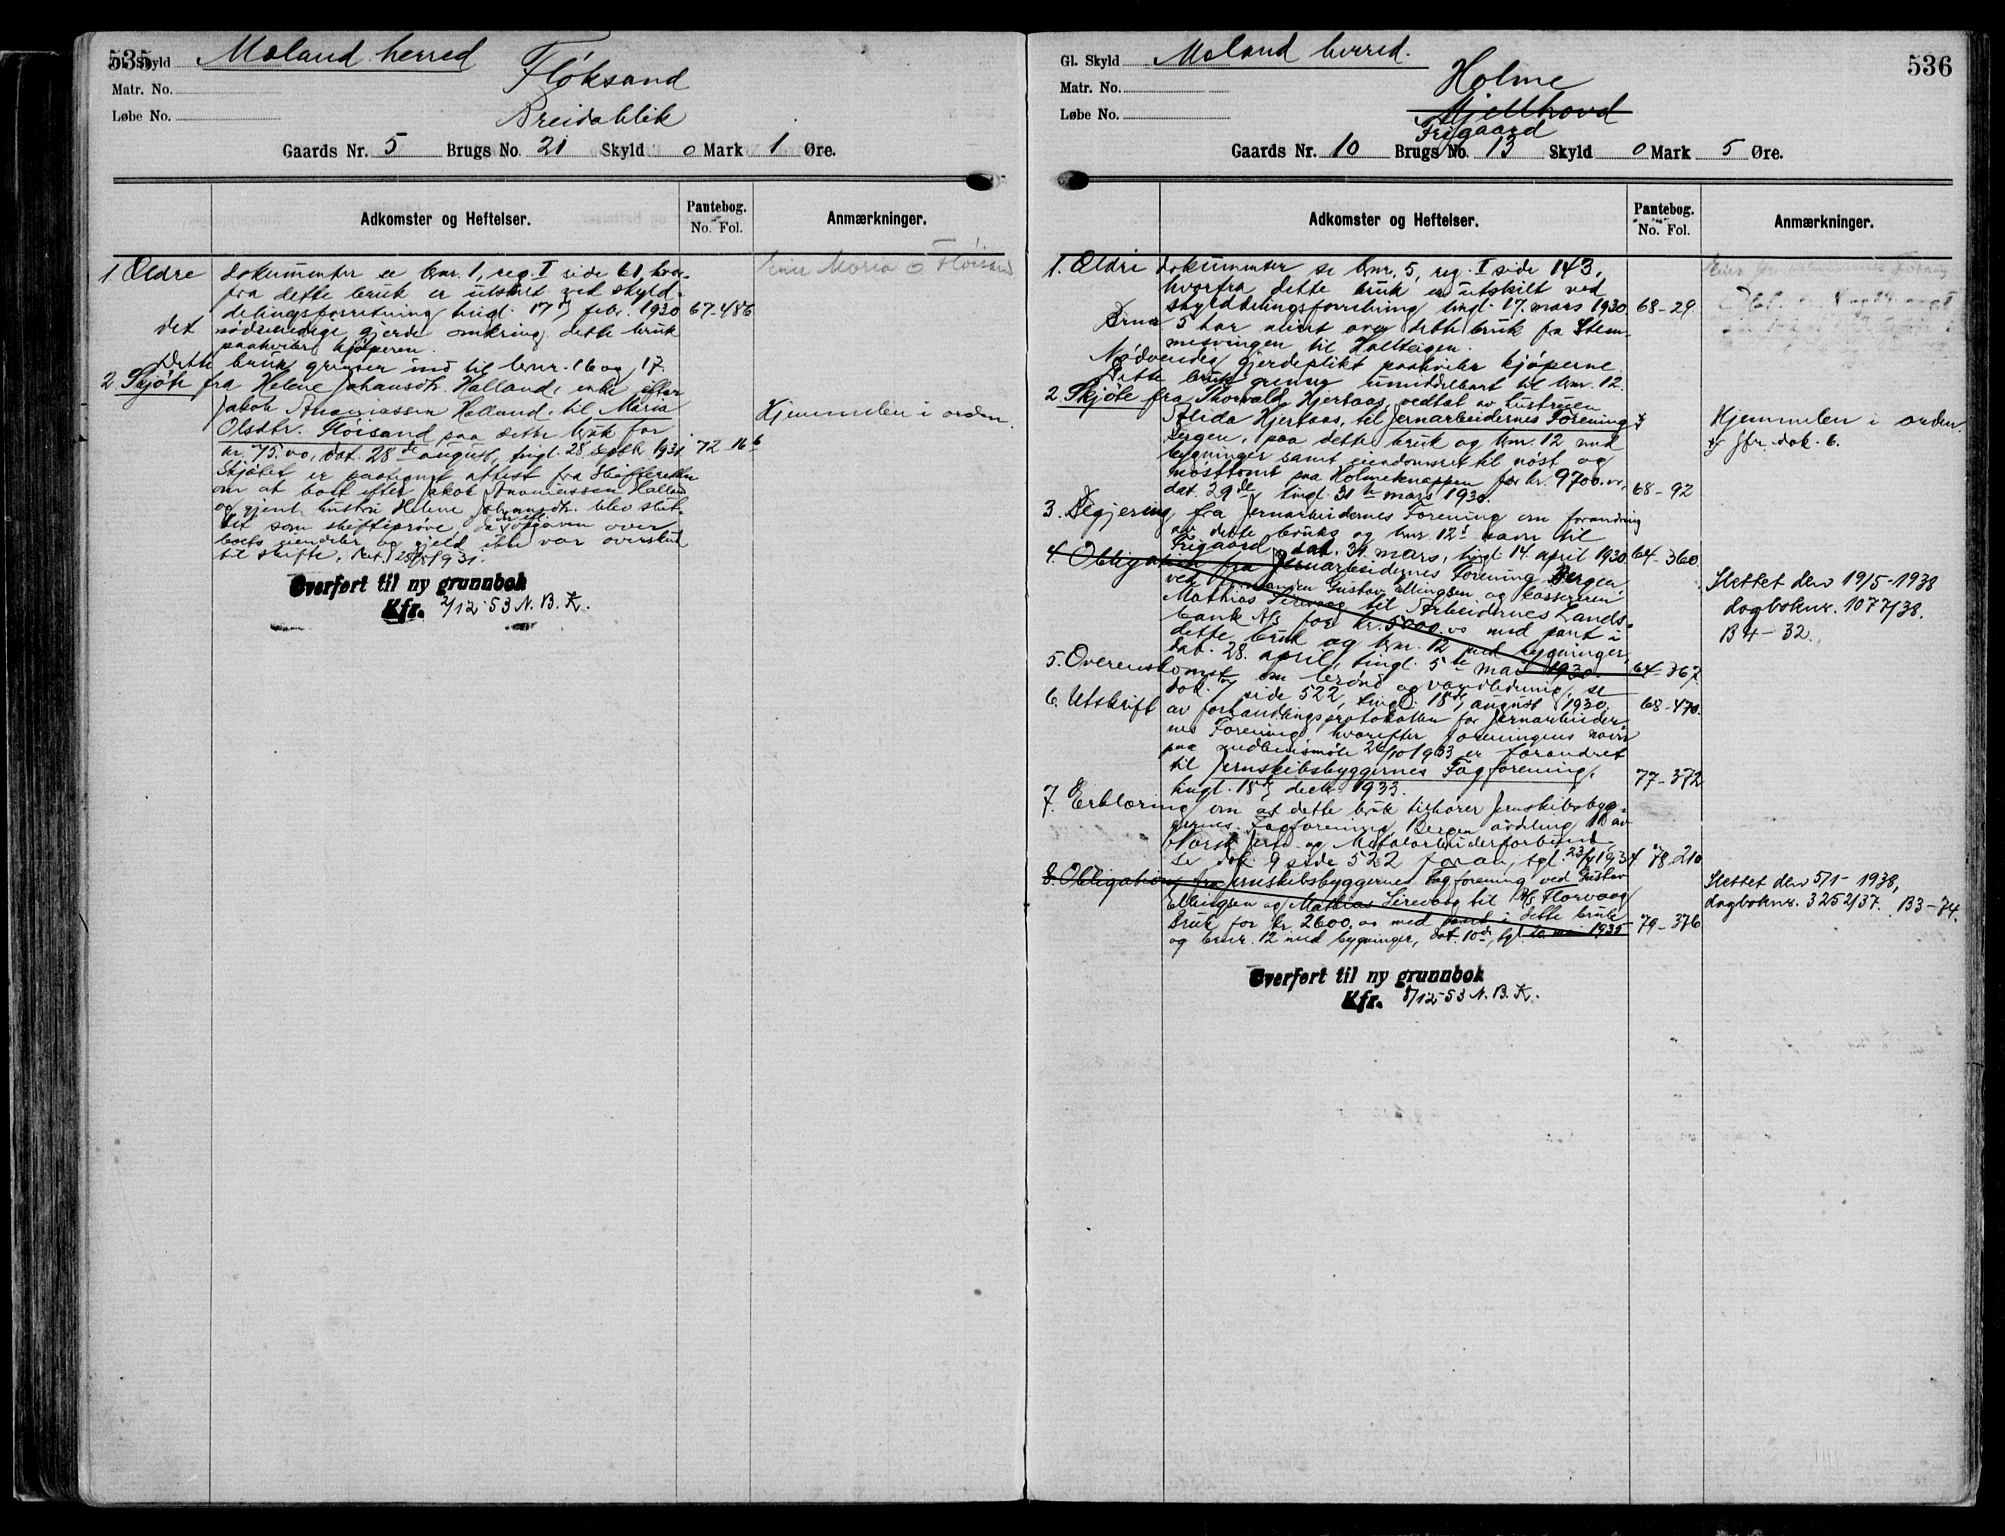 535
Gl. Skyld Meland herred
Matr. No.
Løbe No.
Fløksand
Breidablik
Gaards Nr. 5 Brugs No. 21 Skyld 0 Mark 1 Øre.
Adkomster og Heftelser.
Pantebog.
No. Fol.
Anmærkninger.
Eier Maria O Fløisand
1. Ældre dokumenter se bnr. 1, reg. I side 61, hvor-
fra dette bruk er utskilt ved skyld-
delingsforretning tingl. 17 febr. 1930 67-486
Det nødvendige gjerde omkring dette bruk
paahviler kjøperen.
Dette bruk grenser ind til bnr. 16 og 17.
2. Skjøte fra Helene Johansdtr. Halland, enke efter
Jakob Ananiassen Halland, til Maria
Olsdtr. Fløisand paa dette bruk for
kr. 75.00, dat. 28de august, tingl. 28 septb. 1931. 72-166
Hjemmelen i orden.
Skjøtet er paategnet attest fra Skifteretten
om at boet efter Jakob Ananiassen Halland
og gjenl. hustru Helene Johansdtr. blev slut-
tet som skifteprøve, da opgaven over
boets eiendeler og gjeld ikke var overskud
til skifte. Dat. 1931.
Overført til ny grunnbok
Kfr. 2/12-53 N. B. K.
536
Gl. Skyld Meland herred.
Matr. No.
Løbe No.
Holme
Mjelthovd
Frigaard
Gaards Nr. 10 Brugs No. 13 Skyld 0 Mark 5 Øre.
Adkomster og Heftelser.
Pantebog.
No. Fol.
Anmærkninger.
1. Ældre dokumenter se bnr. 5, reg. I side 143,
hvorfra dette bruk er utskilt ved
skylddelingsforretning tingl. 17. mars 1930 68-29
Brnr 5 har utvei over dette bruk fra Stem-
mesvingen til Hallteigen.
Nødvendig gjerdeplikt paahviler kjøperne
Dette bruk grenser umiddelbart til bnr. 12.
2. Skjøte fra Thorvald Hjertaas, vedtat av hustruen
Alida Hjertaas, til Jernarbeidernes Forening
Bergen, paa dette bruk og bnr. 12 med
bygninger samt eiendomsret til nøst og
nøsttomt paa Holmeknappen for kr. 9700.00,
dat. 29de, tingl. 31te mars 1930. 68-92
Hjemmelen i orden.
jfr. dok. 6.
3. Begjæring fra Jernarbeidernes Forening om forandring
av dette bruks og bnr 12s navn til
Frigaard, dat. 31. mars, tingl. 14. april 1930 64-360
4. Obligation fra Jernarbeidernes Forening Bergen
ved formanden Gustav Ellingsen og kassereren
Mathias Sirevaag til Arbeidernes Lands-
bank A/S for kr. 5000.00 med pant i
dette bruk og bnr. 12 med bygninger,
dat. 28. april, tingl. 5te mai 1930. 64-367.
Slettet den 19/5-1938
dagboknr. 1077/38.
B4-32.
5. Overenskomst om brønd og vandledning, se
dok. 7 side 522, tingl. 18de august 1930. 68-470.
6. Utskrift av forhandlingsprotokollen for Jernarbeider-
nes Forening, hvorefter foreningens navn
paa medlemsmøte 26/10 1933 er forandret
til Jernskibsbyggernes Fagforening,
tingl. 18de decbr 1933. 77-372
7. Erklæring om at dette bruk tilhører Jernskibsbyg-
gernes Fagforening Bergen avdeling 10 av
Norsk Jern- og Metalarbeiderforbund
Se dok. 9 side 522 foran, tgl. 1934 78-210
8. Obligation fra Jernskibsbyggernes Fagforening ved Gustav
Ellingsen og Mathias Sirevaag til A/S Florvaag
Bruk for kr. 2600.00 med pant i dette bruk
og bnr. 12 med bygninger, dat. 10de, tgl. 20 mai 1935 79-376
Slettet den 5/1-1938,
dagboknr. 3252/37. B3-74.
Overført til ny grunnbok
Kfr. 8/12-53 N. B. K.